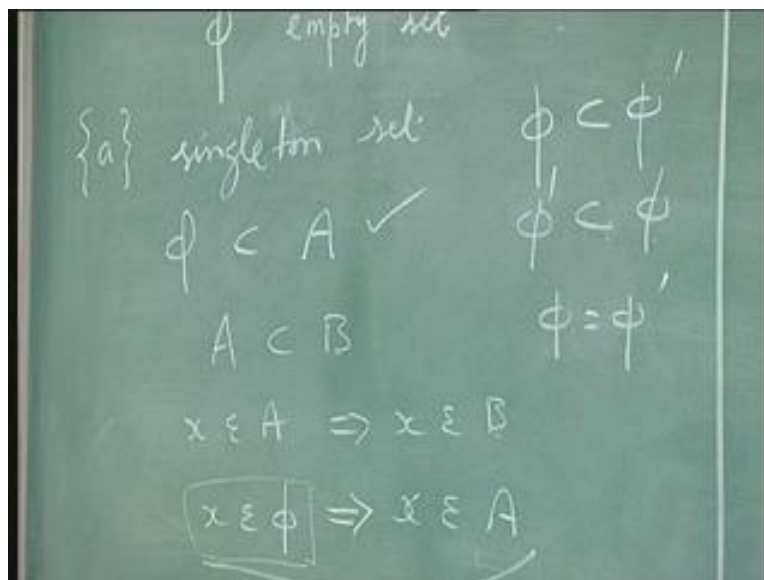 ϕ empty set
{a} singleton set
ϕ ⊂ A ✓
A ⊂ B
x ε A ⇒ x ε B
x ε ϕ ⇒ x ε A
ϕ ⊂ ϕ'
ϕ' ⊂ ϕ
ϕ = ϕ'